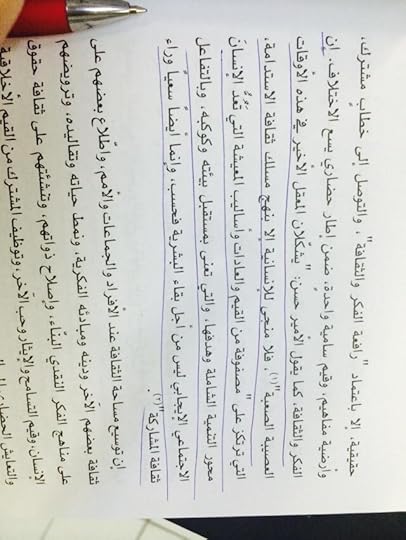 حقيقية، إلا باعتماد "رافعة الفكر والثقافة"، والتوصل إلى خطاب مشترك،
وأرضية مفاهيم، وقيم سامية واحدة، ضمن إطار حضاري يسع الاختلاف. إن
الفكر والثقافة، كما يقول الأمير حسن: "يشكّلان المعقل الأخير في هذه الأوقات
العصيبة الصعبة"(١). فلا منجى للإنسانية إلا بنهج مسلك ثقافة الاستدامة،
التي ترتكز على "مصفوفة من القيم والعادات وأساليب المعيشة التي تَعُدُّ الإنسانَ
محور التنمية الشاملة وهدفها، والتي تعنى بمستقبل بيئته وكوكبه، وبالتفاعل
الاجتماعي الإيجابي ليس من أجل بقاء البشرية فحسب، وإنما أيضاً سعياً وراء
ثقافة المشاركة"(٢).
إن توسيع مساحة الثقافة عند الأفراد والجماعات والأمم، واطّلاع بعضهم على
ثقافة بعضهم الآخر ودينه ومبادئه الفكرية، ونمط حياته وتقاليده، وترويضهم
على مناهج الفكر النقدي البنّاء، وإصلاح ذواتهم، وتنشئتهم على ثقافة حقوق
الإنسان، وقيم التسامح والإيثار وحب الآخر، وتوظيف المشترك من القيم الأخلاقية
والتعايش الحضاري